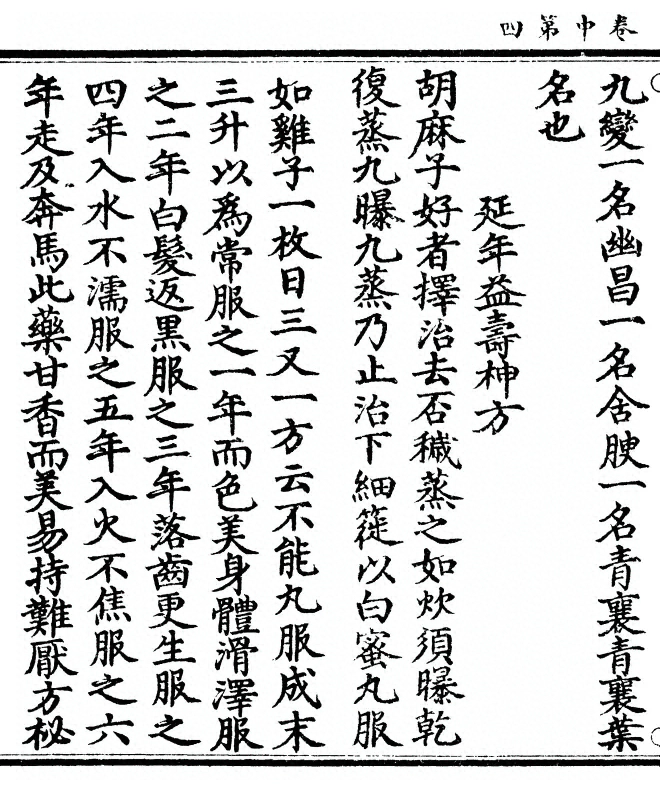 卷中第四
九變一名幽昌一名舍腴一名青襄青襄葉
名也
延年益壽神方
胡麻子好者擇治去否穢蒸之如炊須曝乾
復蒸九曝九蒸乃止治下細簁以白蜜丸服
如雞子一枚日三又一方云不能丸服成末
三升以爲常服之一年而色美身體滑澤服
之二年白髮返黒服之三年落齒更生服之
四年入水不濡服之五年入火不焦服之六
年走及奔馬此藥甘香而美易持難厭方秘